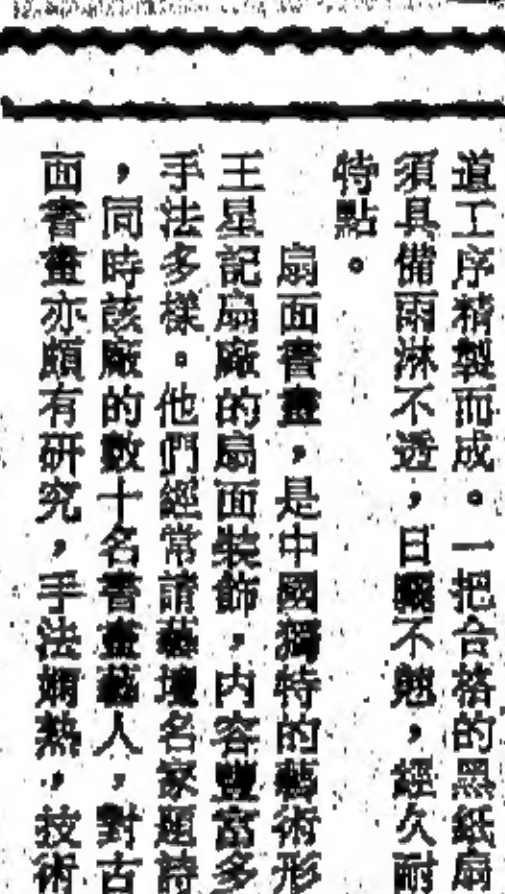 道工序精製而成。一把合格的黑紙扇
須具備雨淋不透,日曬不翹,經久耐
特點。
扇面書畫,是中國獨特的藝術形
王星記扇廠的扇面裝飾,內容豐富多
手法多樣。他們經常請藝壇名家題詩
,同時該廠的數十名書畫藝人,對古
面書畫亦頗有研究,手法嫻熟,技術